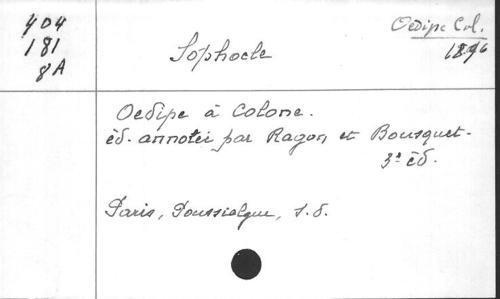 404
181
8A
Sophocle
Oedipe Col.
1896
Oedipe à Colone.
éd. annotée par Ragon et Bousquet.
3ª éd.
Paris, Poussielgue, s.d.